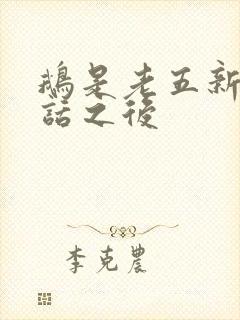 鵝是老五新
話之後
李克農